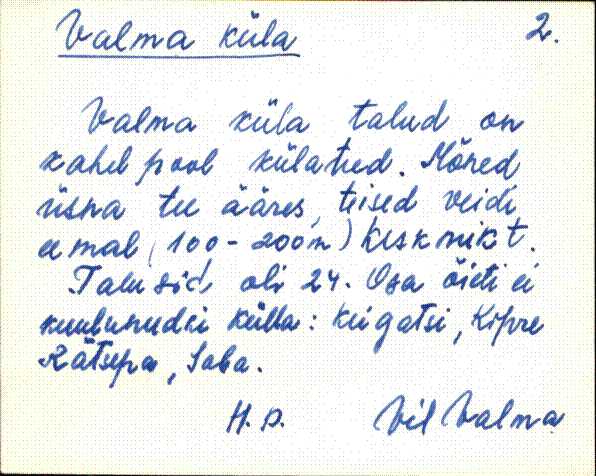 Valma küla 2.
Valma küla talud on
kahel pool külateed. Mõned
üsna tee ääres, teised veidi
eemal (100-200m) keskmikt.
Talusid oli 24. Osa õieti ei
kuulunudki külla: Kiigatsi, Kipre
Rätsepa, Saba.
H. D. Vil Valma